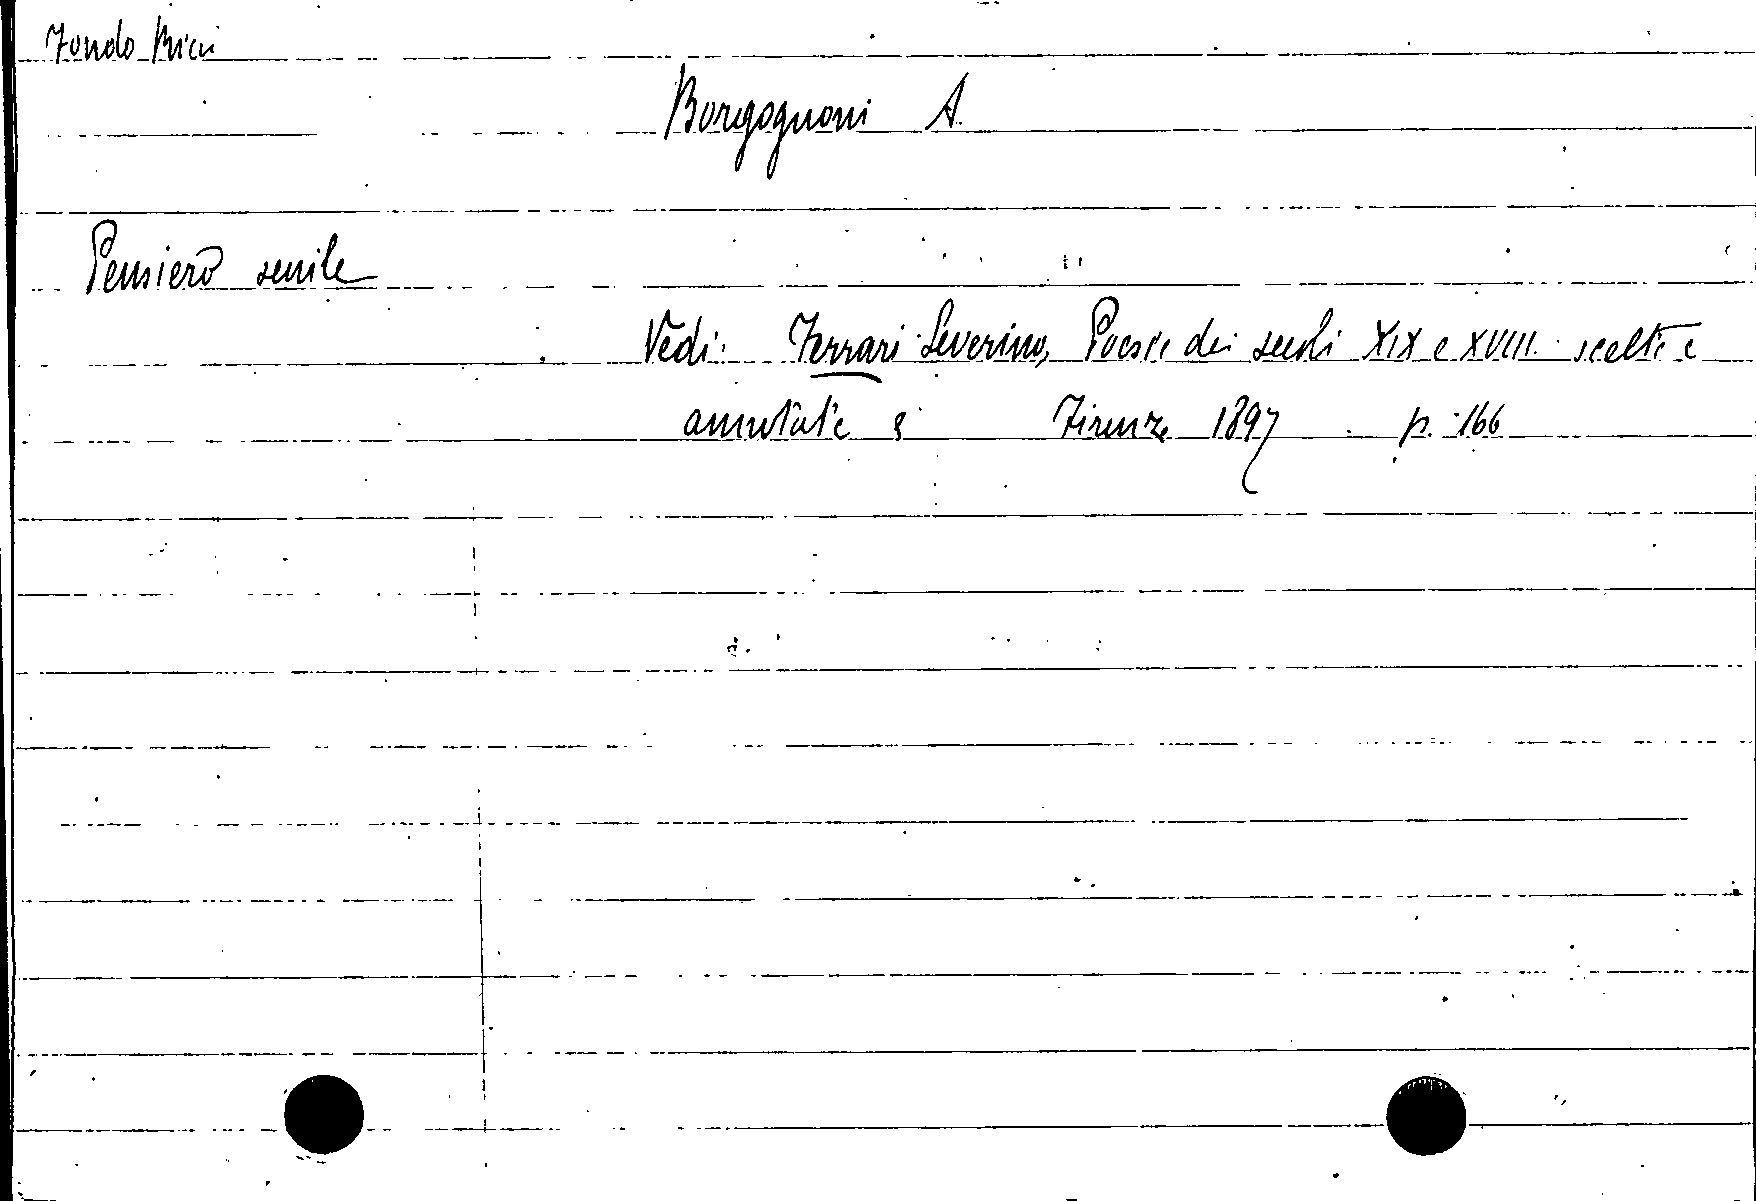 Fondo Ricci
Borgognoni A.
Pensiero senile
Vedi: Ferrari Severino, Poesie dei secoli XIX e XVIII. scelte e
annotate Firenze 1897 p. 166